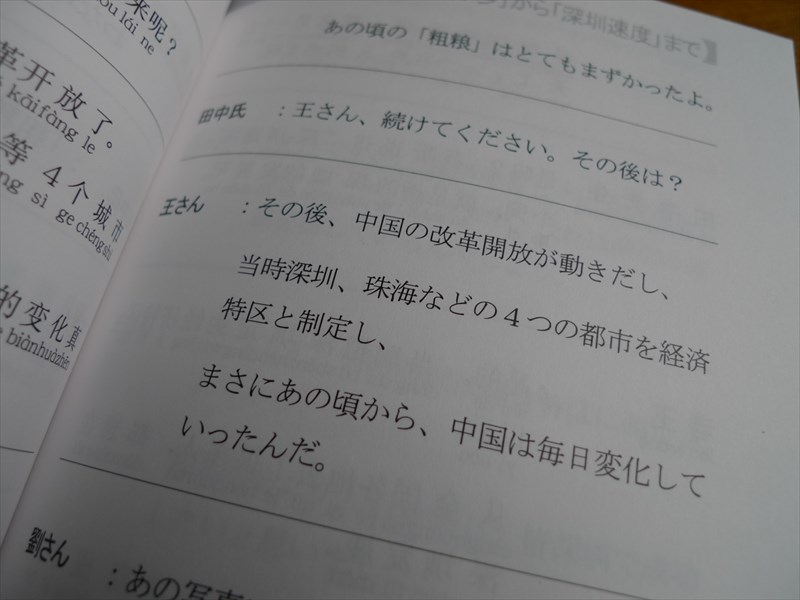 来呢？
lái ne
革开放了。
kāifàng le
等 4个城市
sì ge chéngshì
的变化真
biànhuàzhēn
」から「深圳速度」まで】
あの頃の「粗粮」はとてもまずかったよ。
田中氏 ：王さん、続けてください。その後は？
王さん ：その後、中国の改革開放が動きだし、
当時深圳、珠海などの４つの都市を経済
特区と制定し、
まさにあの頃から、中国は毎日変化して
いったんだ。
劉さん ：あの写真